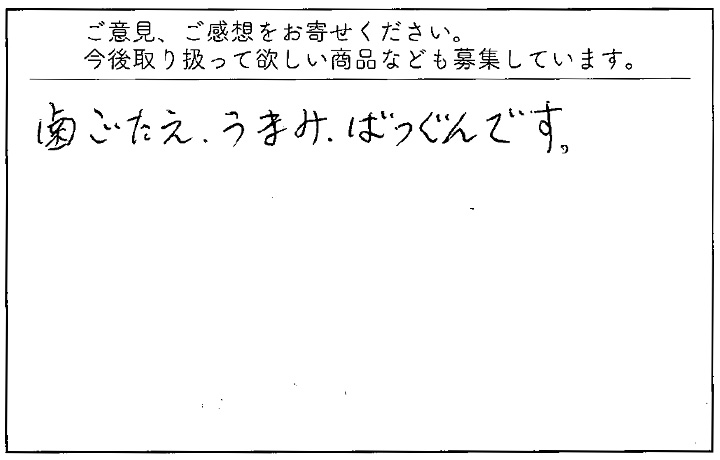 ご意見、ご感想をお寄せください。
今後取り扱って欲しい商品なども募集しています。
歯ごたえ、うまみ、ばつぐんです。